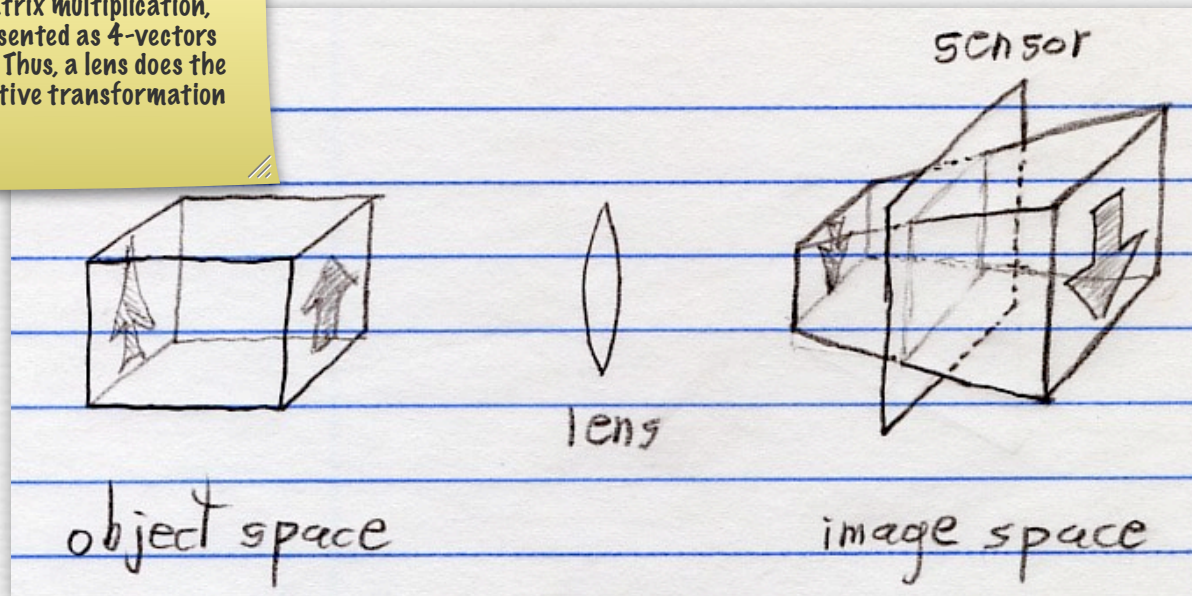 multiplication,
sented as 4-vectors
Thus, a lens does the
tive transformation
sensor
lens
object space
image space